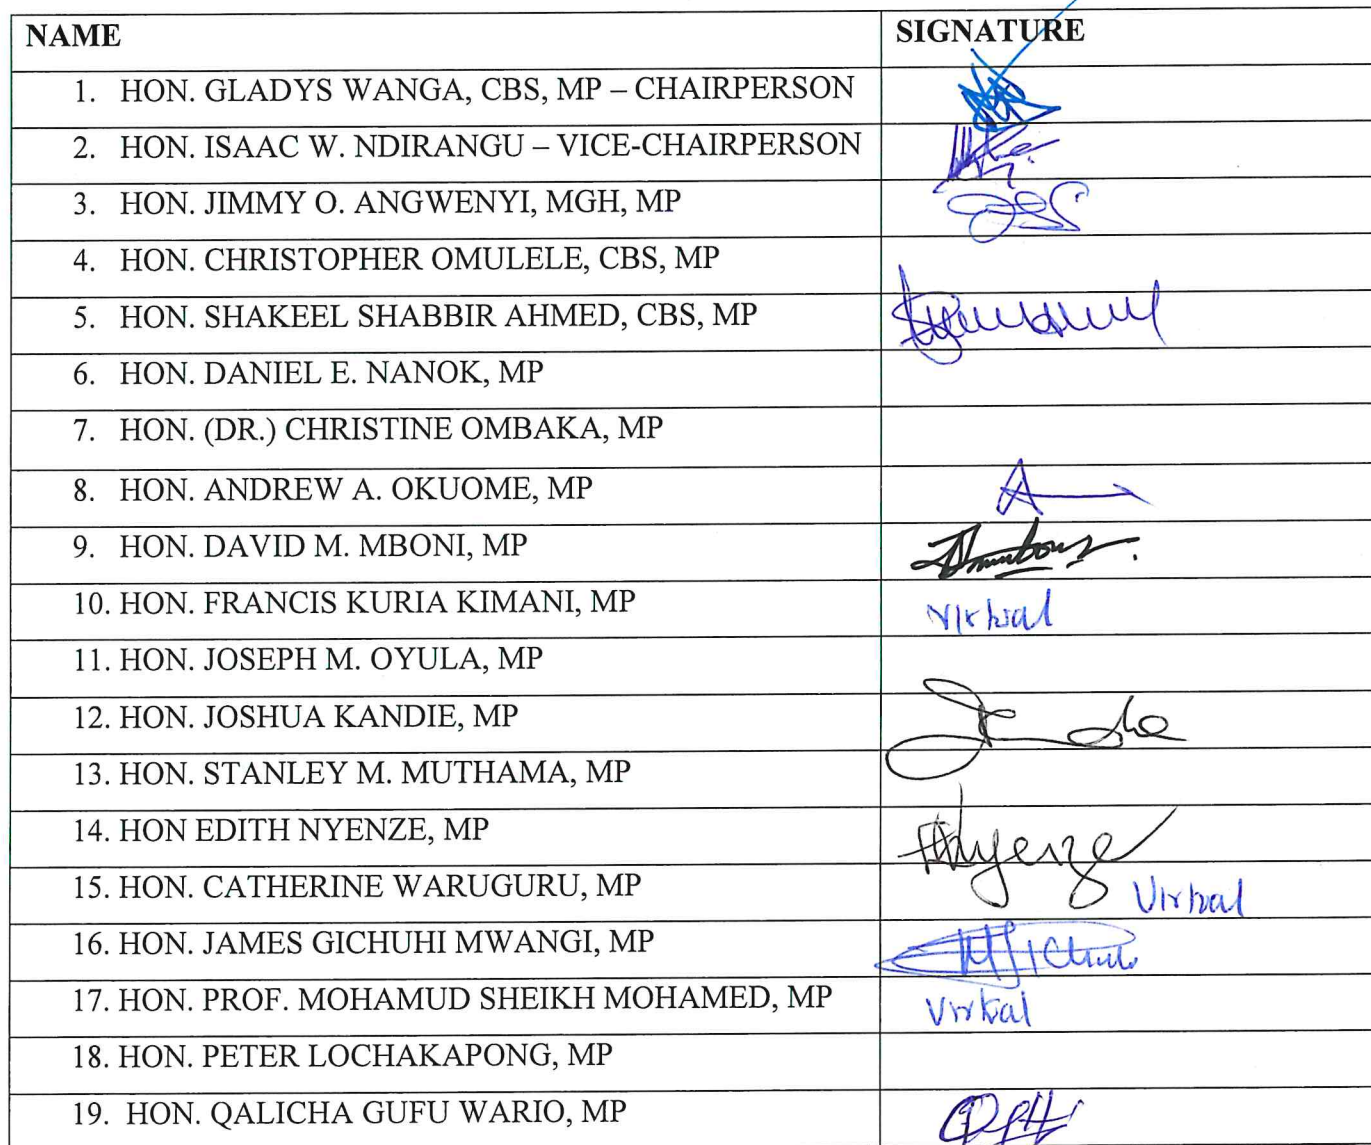 NAME SIGNATURE
1. HON. GLADYS WANGA, CBS, MP – CHAIRPERSON
2. HON. ISAAC W. NDIRANGU – VICE-CHAIRPERSON
3. HON. JIMMY O. ANGWENYI, MGH, MP
4. HON. CHRISTOPHER OMULELE, CBS, MP
5. HON. SHAKEEL SHABBIR AHMED, CBS, MP
6. HON. DANIEL E. NANOK, MP
7. HON. (DR.) CHRISTINE OMBAKA, MP
8. HON. ANDREW A. OKUOME, MP
9. HON. DAVID M. MBONI, MP
10. HON. FRANCIS KURIA KIMANI, MP Virtual
11. HON. JOSEPH M. OYULA, MP
12. HON. JOSHUA KANDIE, MP
13. HON. STANLEY M. MUTHAMA, MP
14. HON EDITH NYENZE, MP
15. HON. CATHERINE WARUGURU, MP Virtual
16. HON. JAMES GICHUHI MWANGI, MP
17. HON. PROF. MOHAMUD SHEIKH MOHAMED, MP Virtual
18. HON. PETER LOCHAKAPONG, MP
19. HON. QALICHA GUFU WARIO, MP